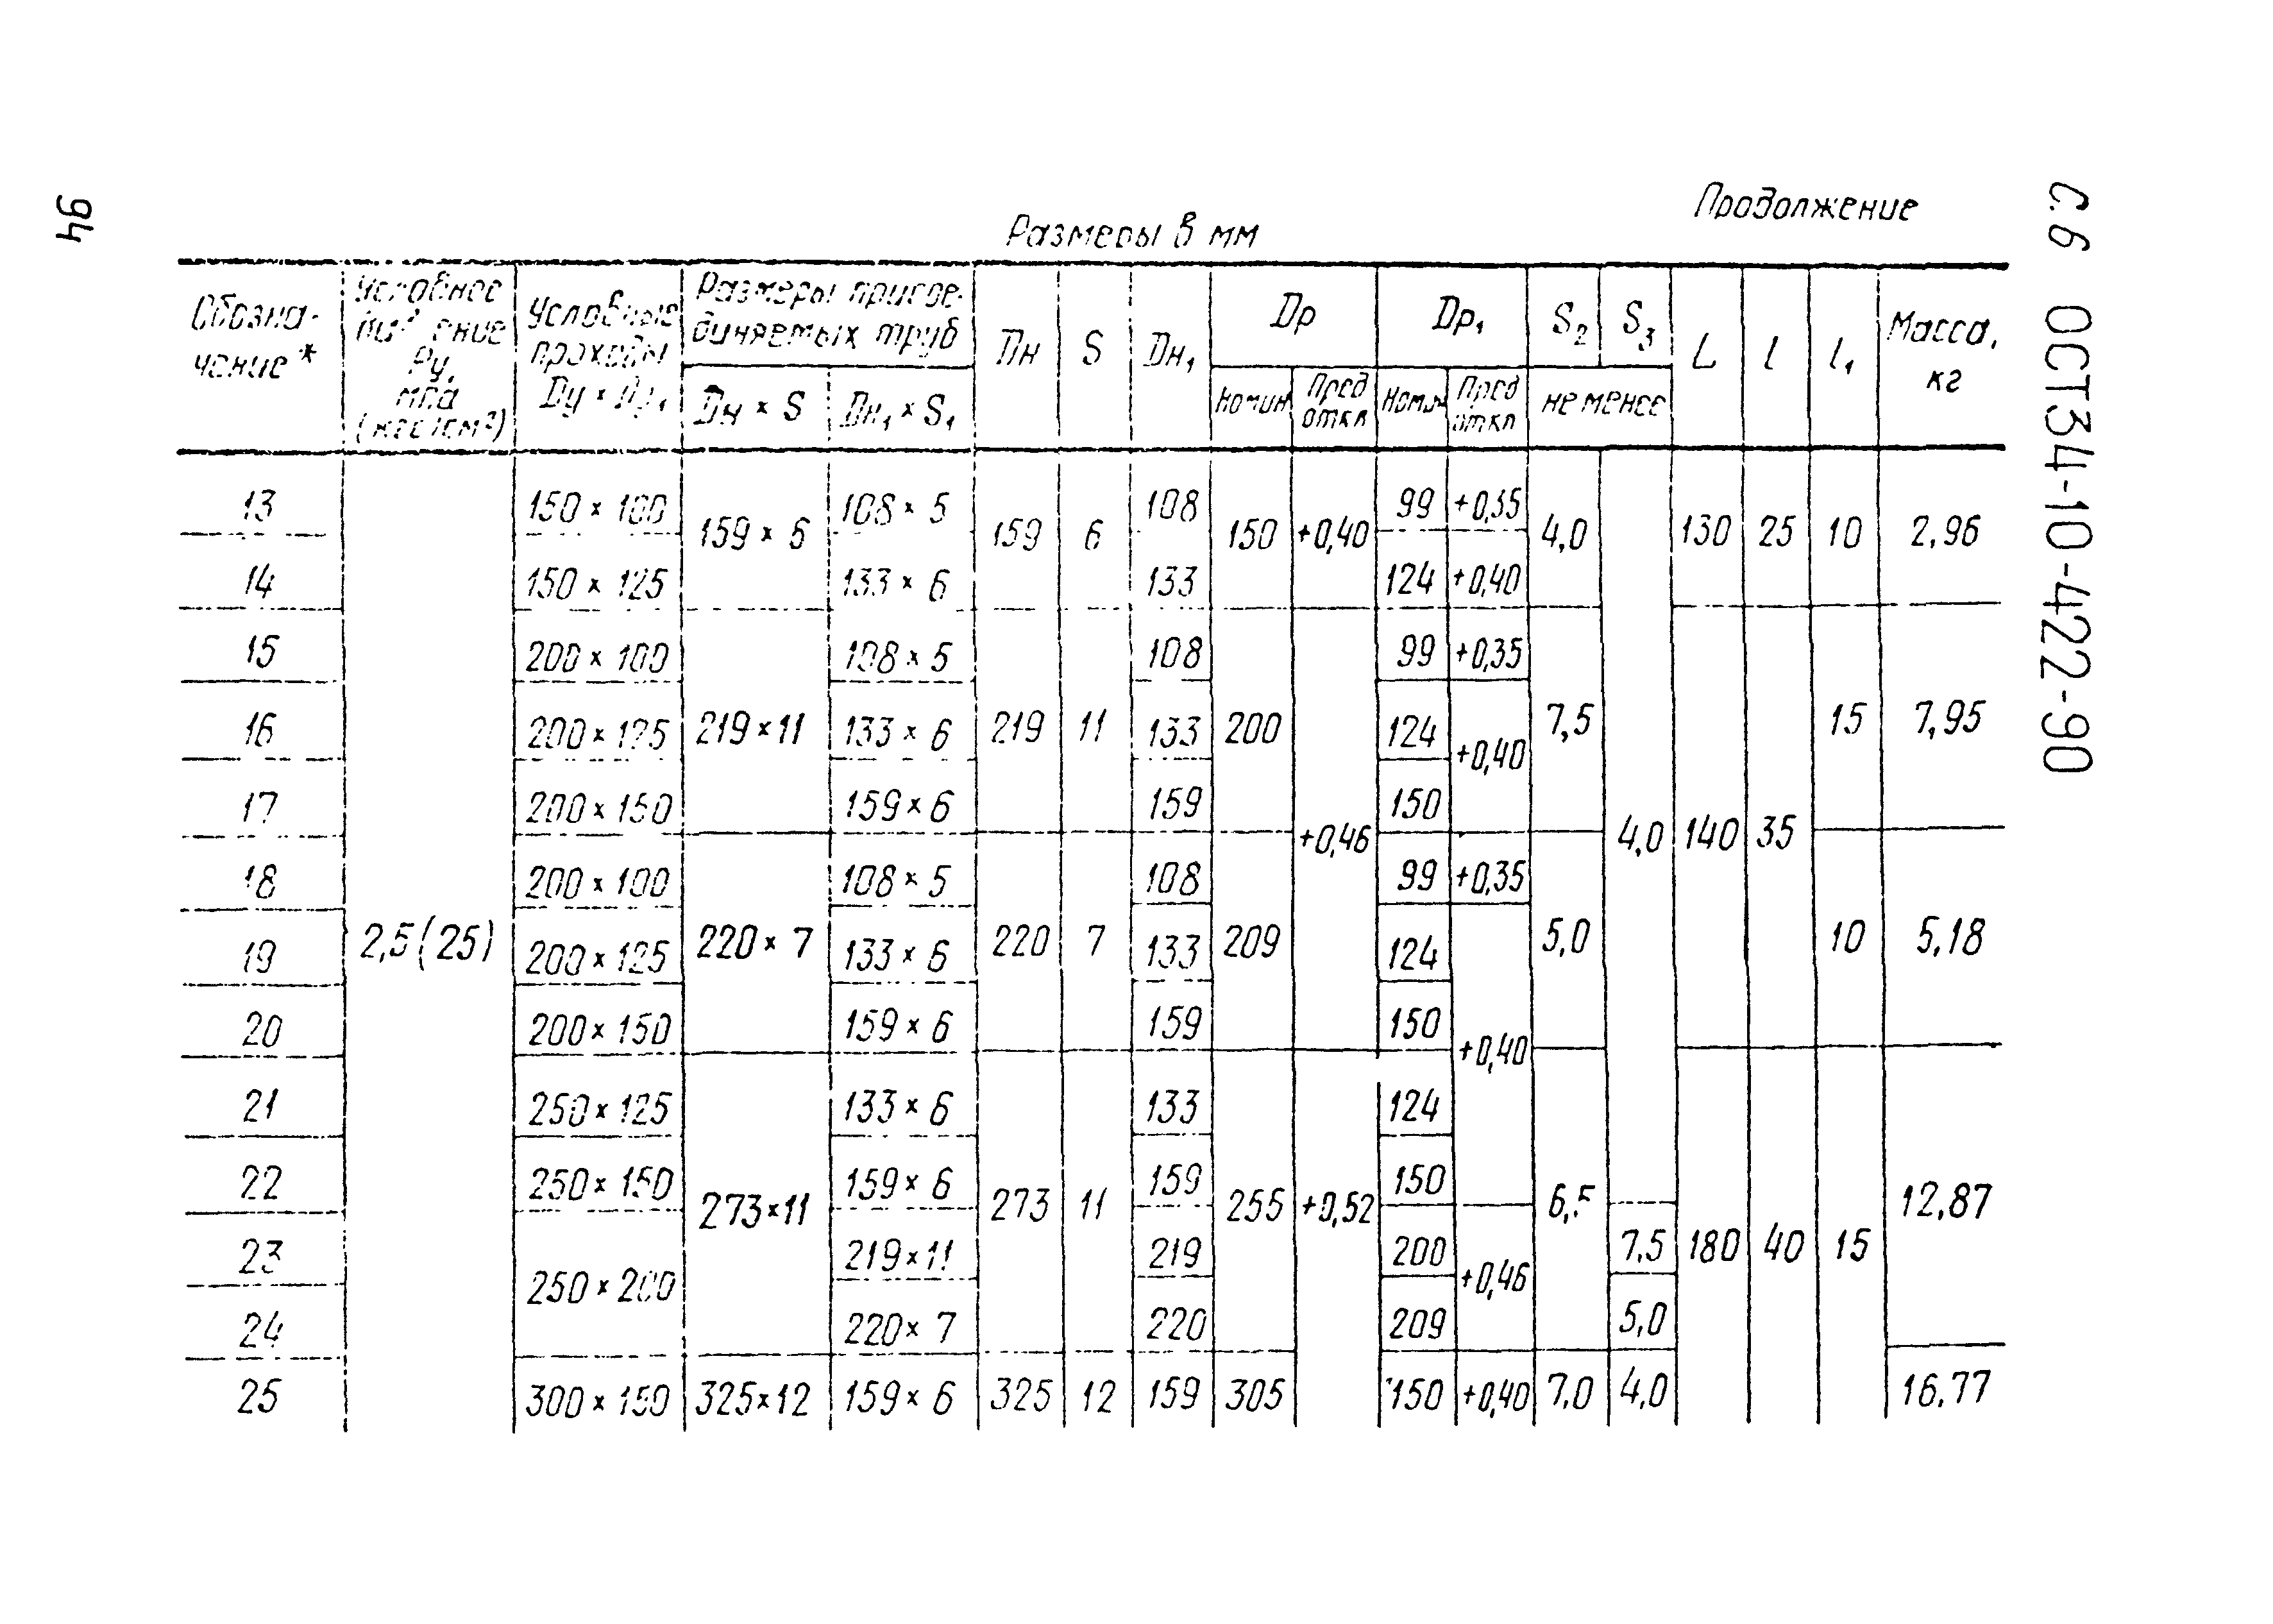 94
С.6 ОСТ34-10-422-90
Продолжение
Размеры в мм
Обозначение* | Условное давление Ру, МПа (кгс/см²) | Условные проходы Dу × Dу₁ | Размеры присоединяемых труб | Dн | S | Dн₁ | Dр | Dр₁ | S₂ | S₃ | L | l | l₁ | Масса, кг
Dн × S | Dн₁ × S₁ | Номин | Пред откл | Номин | Пред откл | не менее
13 | 150 × 100 | 159 × 6 | 108 × 5 | 159 | 6 | 108 | 150 | +0,40 | 99 | +0,35 | 4,0 | 130 | 25 | 10 | 2,96
14 | 150 × 125 | 133 × 6 | 133 | 124 | +0,40
15 | 200 × 100 | 108 × 5 | 108 | 99 | +0,35
16 | 200 × 125 | 219 × 11 | 133 × 6 | 219 | 11 | 133 | 200 | 124 | +0,40 | 7,5 | 15 | 7,95
17 | 200 × 150 | 159 × 6 | 159 | +0,46 | 150 | 4,0 | 140 | 35
18 | 200 × 100 | 108 × 5 | 108 | 99 | +0,35
19 | 2,5(25) | 200 × 125 | 220 × 7 | 133 × 6 | 220 | 7 | 133 | 209 | 124 | 5,0 | 10 | 5,18
20 | 200 × 150 | 159 × 6 | 159 | 150 | +0,40
21 | 250 × 125 | 133 × 6 | 133 | 124
22 | 250 × 150 | 273 × 11 | 159 × 6 | 273 | 11 | 159 | 255 | +0,52 | 150 | 6,5 | 12,87
23 | 250 × 200 | 219 × 11 | 219 | 200 | +0,46 | 7,5 | 180 | 40 | 15
24 | 220 × 7 | 220 | 209 | 5,0
25 | 300 × 150 | 325 × 12 | 159 × 6 | 325 | 12 | 159 | 305 | 150 | +0,40 | 7,0 | 4,0 | 16,77